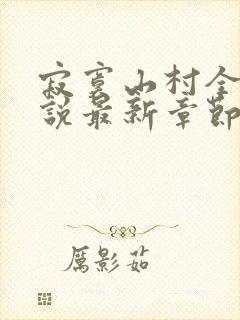 寂寞山村全
说最新章节
厲影茹